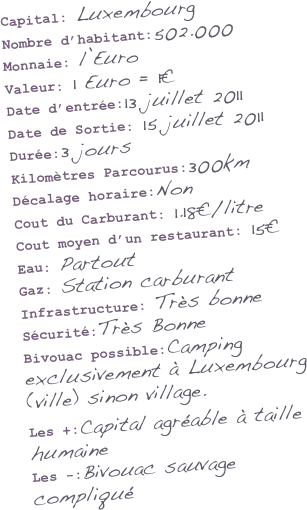 Capital: Luxembourg
Nombre d'habitant:502.000
Monnaie: l'Euro
Valeur: 1 Euro = 1€
Date d'entrée:13 juillet 2011
Date de Sortie: 15 juillet 2011
Durée:3 jours
Kilomètres Parcourus:300km
Décalage horaire:Non
Cout du Carburant: 1.18€/litre
Cout moyen d'un restaurant: 15€
Eau: Partout
Gaz: Station carburant
Infrastructure: Très bonne
Sécurité:Très Bonne
Bivouac possible:Camping
exclusivement à Luxembourg
(ville) sinon village.
Les +:Capital agréable à taille
humaine
Les -:Bivouac sauvage
compliqué